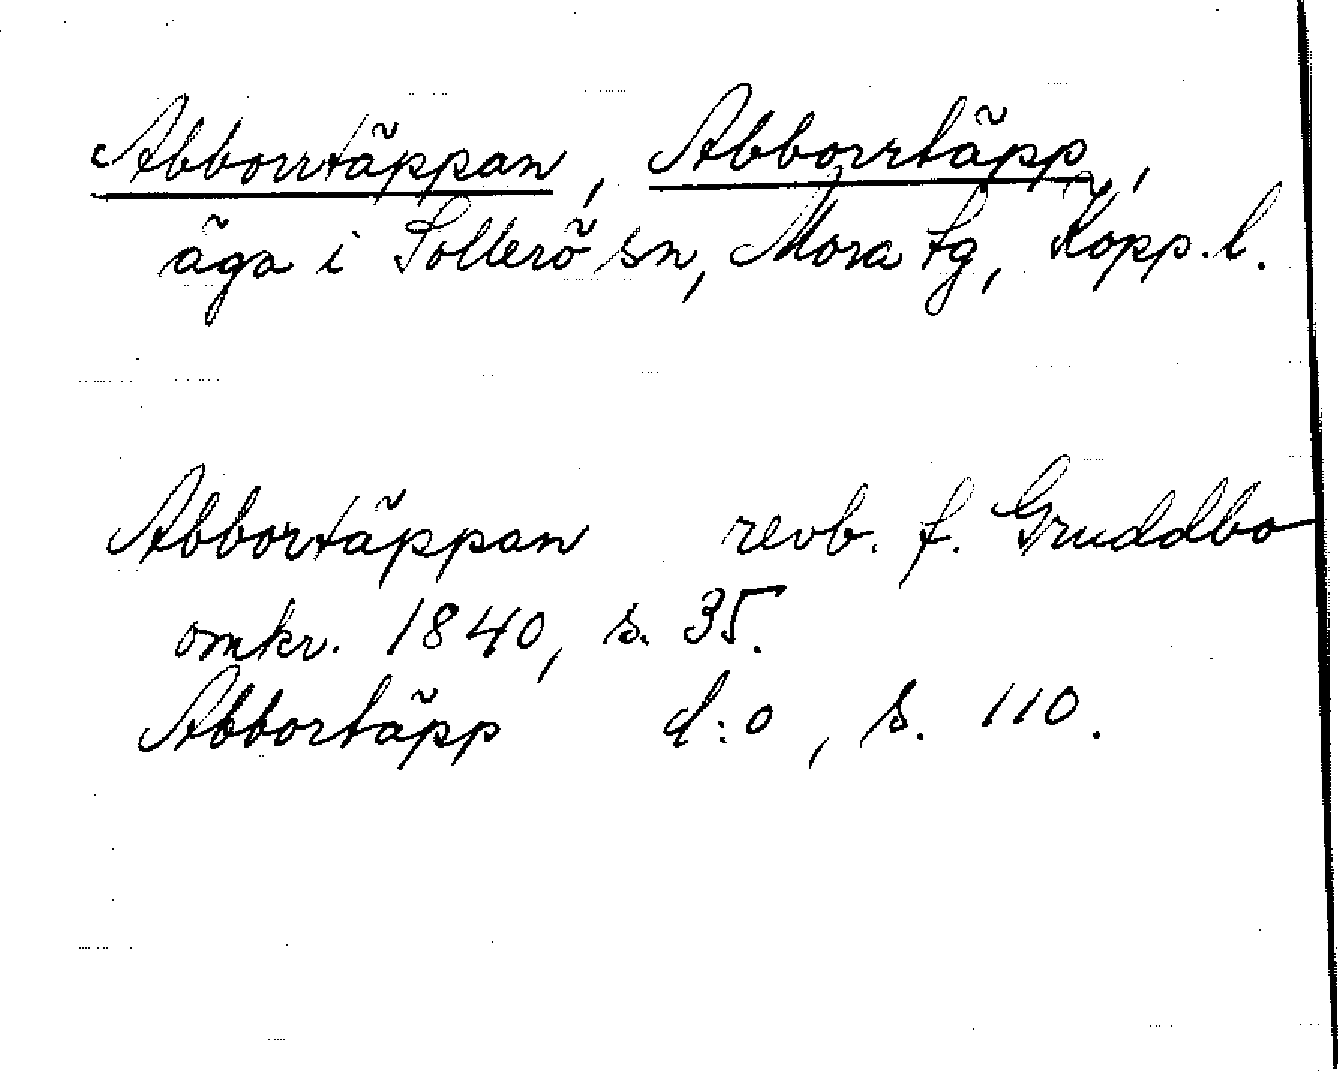 Abborrtäppan, Abborrtäpp,
äga i Sollerö sn, Mora tg, Kopp. l.
Abbortäppan revb. f. Gruddbo
omkr. 1840, s. 35.
Abbortäpp d:o, s. 110.